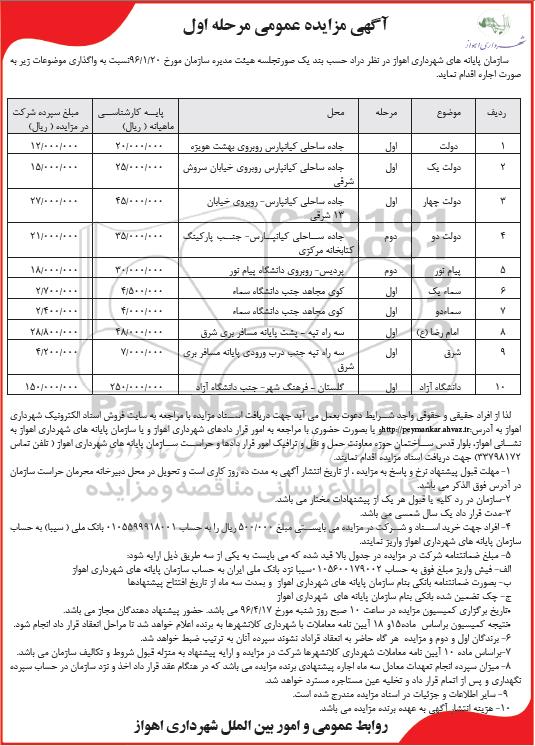 آگهی مزایده عمومی مرحله اول
شهرداری اهواز
سازمان پایانه های شهرداری اهواز در نظر دراد حسب بند یک صورتجلسه هیئت مدیره سازمان مورخ ۹۶/۱/۲۰نسبت به واگذاری موضوعات زیر به
صورت اجاره اقدام نماید.
ردیف موضوع مرحله محل پایه کارشناسی ماهیانه ( ریال) مبلغ سپرده شرکت در مزایده ( ریال)
۱ دولت اول جاده ساحلی کیانپارس روبروی بهشت هویزه ۲۰/۰۰۰/۰۰۰ ۱۲/۰۰۰/۰۰۰
۲ دولت یک اول جاده ساحلی کیانپارس روبروی خیابان سروش شرقی ۲۵/۰۰۰/۰۰۰ ۱۵/۰۰۰/۰۰۰
۳ دولت چهار اول جاده ساحلی کیانپارس- روبروی خیابان ۱۳ شرقی ۴۵/۰۰۰/۰۰۰ ۲۷/۰۰۰/۰۰۰
۴ دولت دو دوم جاده ساحلی کیانپارس- جنب پارکینگ کتابخانه مرکزی ۳۵/۰۰۰/۰۰۰ ۲۱/۰۰۰/۰۰۰
۵ پیام نور دوم پردیس- روبروی دانشگاه پیام نور ۳۰/۰۰۰/۰۰۰ ۱۸/۰۰۰/۰۰۰
۶ سماء یک اول کوی مجاهد جنب دانشگاه سماء ۴/۵۰۰/۰۰۰ ۲/۷۰۰/۰۰۰
۷ سماءدو اول کوی مجاهد جنب دانشگاه سماء ۴/۰۰۰/۰۰۰ ۲/۴۰۰/۰۰۰
۸ امام رضا (ع) اول سه راه تپه - پشت پایانه مسافر بری شرق ۴۸/۰۰۰/۰۰۰ ۲۸/۸۰۰/۰۰۰
۹ شرق اول سه راه تپه جنب درب ورودی پایانه مسافر بری شرق ۷/۰۰۰/۰۰۰ ۴/۲۰۰/۰۰۰
۱۰ دانشگاه آزاد اول گلستان - فرهنگ شهر- جنب دانشگاه آزاد ۲۵۰/۰۰۰/۰۰۰ ۱۵۰/۰۰۰/۰۰۰
لذا از افراد حقیقی و حقوقی واجد شرایط دعوت بعمل می آید جهت دریافت اسناد مزایده با مراجعه به سایت فروش اسناد الکترونیک شهرداری
اهواز به آدرس:http://peymankar.ahvaz.ir و یا بصورت حضوری با مراجعه به امور قرار دادهای شهرداری اهواز و یا سازمان پایانه های شهرداری اهواز به
نشانی اهواز، بلوار قدس ساختمان حوزه معاونت حمل و نقل و ترافیک امور قرار دادها و حراست سازمان پایانه های شهرداری اهواز ( تلفن تماس
۳۳۷۹۸۱۷۲) جهت دریافت اسناد مزایده اقدام نمایند.
۱- مهلت قبول پیشنهاد نرخ و پاسخ به مزایده ، از تاریخ انتشار آگهی به مدت ده روز کاری است و تحویل در محل دبیرخانه محرمان حراست سازمان
در آدرس فوق الذکر می باشد.
۲-سازمان در رد کلیه یا قبول هر یک از پیشنهادات مختار می باشد.
۳-مدت قرار داد یک سال شمسی می باشد.
۴- افراد جهت خرید اسناد و شرکت در مزایده می بایستی مبلغ ۵۰۰/۰۰۰ ریال را به حساب ۰۱۰۵۵۹۹۹۱۸۰۰۱ بانک ملی ( سیبا) به حساب
سازمان پایانه های شهرداری اهواز واریز نمایند.
۵- مبلغ ضمانتنامه شرکت در مزایده در جدول بالا قید شده که می بایست به یکی از سه طریق ذیل ارایه شود:
الف- فیش واریز مبلغ فوق به حساب ۰۱۰۵۶۰۰۱۷۹۰۰۲سیبا نزد بانک ملی ایران به حساب سازمان پایانه های شهرداری اهواز
ب- بصورت ضمانتنامه بانکی بنام سازمان پایانه های شهرداری اهواز و بمدت سه ماه از تاریخ افتتاح پیشنهادها
ج- چک تضمین شده بانکی بنام سازمان پایانه های شهرداری اهواز
•تاریخ برگزاری کمیسیون مزایده در ساعت ۱۰ صبح روز شنبه مورخ ۹۶/۴/۱۷ می باشد. حضور پیشنهاد دهندگان مجاز می باشد.
•نتیجه کمیسیون براساس ماده۱۵و ۱۸ آیین نامه معاملات با شهرداری کلانشهرها به برنده اعلام خواهد شد تا مراحل انعقاد قرار داد انجام شود.
۶- برندگان اول و دوم و مزایده هر گاه حاضر به انعقاد قراداد نشوند سپرده آنان به ترتیب ضبط خواهد شد.
۷-براساس ماده ۱۰ آیین نامه معاملات شهرداری کلانشهرها شرکت در مزایده و ارایه پیشنهاد به منزله قبول شروط و تکالیف سازمان می باشد.
۸- میزان سپرده انجام تعهدات معادل سه ماه اجاره پیشنهادی برنده مزایده می باشد که در هنگام عقد قرار داد اخذ و نزد سازمان در حساب سپرده
نگهداری و پس از اتمام قرار داد و تخلیه عین مستاجره مسترد خواهد شد.
۹- سایر اطلاعات و جزئیات در اسناد مزایده مندرج شده است.
۱۰- هزینه انتشار آگهی به عهده برنده مزایده می باشد.
روابط عمومی و امور بین الملل شهرداری اهواز
ParsNamadData
پایگاه اطلاع رسانی مناقصه و مزایده
۰۲۱-۸۸۳۴۹۶۷۰